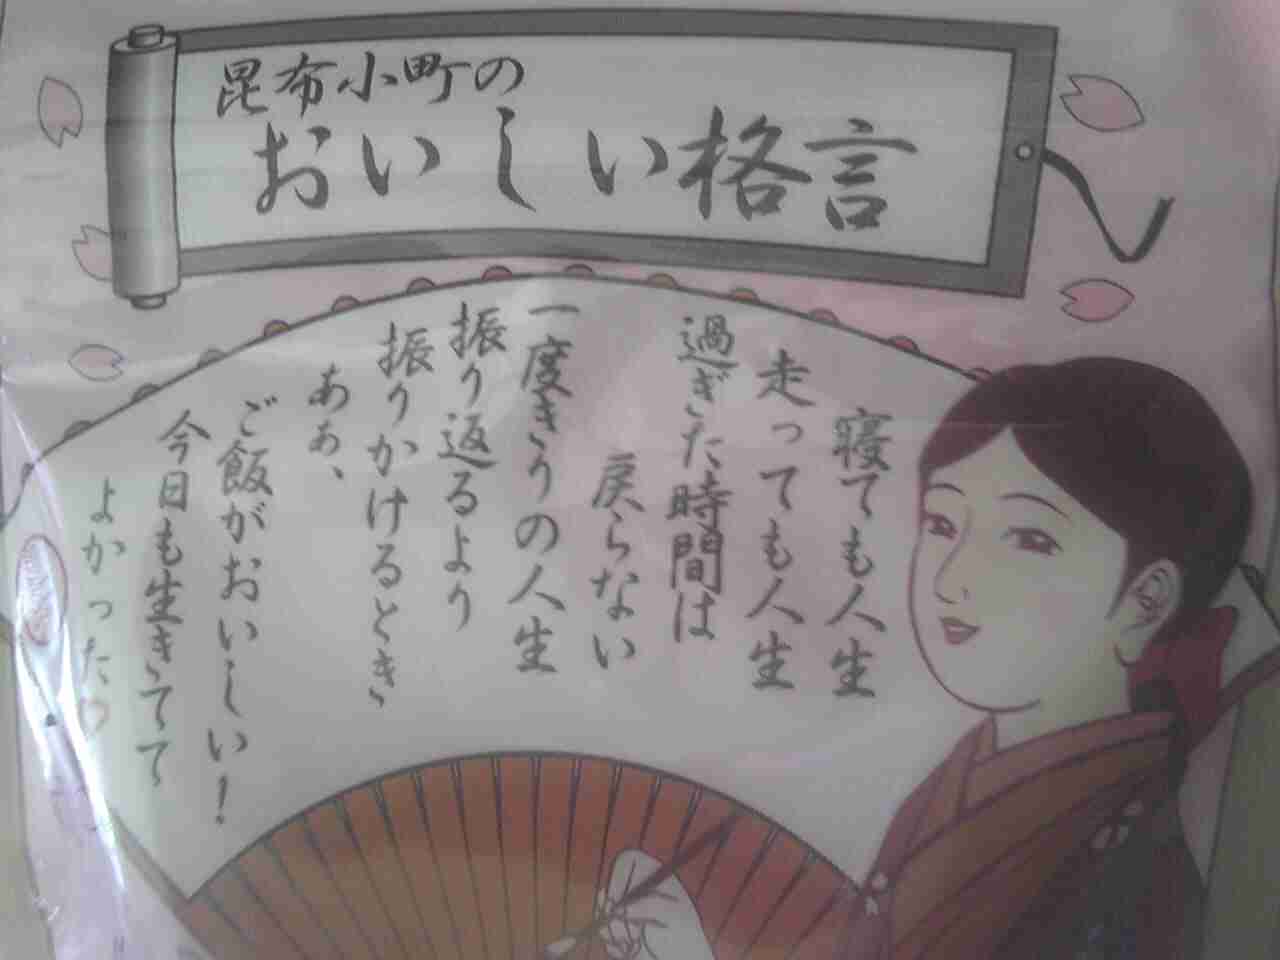 昆布小町の
おいしい格言
寝ても人生
走っても人生
過ぎた時間は
戻らない
一度きりの人生
振り返るより
振りかけるとき
あぁ、
ご飯がおいしい！
今日も生きてて
よかった♡